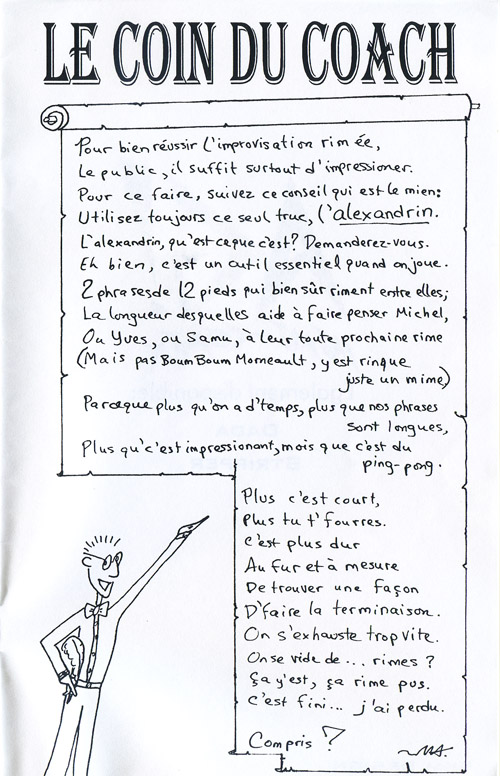 LE COIN DU COACH
Pour bien réussir l'improvisation rimée,
Le public, il suffit surtout d'impressioner.
Pour ce faire, suivez ce conseil qui est le mien:
Utilisez toujours ce seul truc, l'alexandrin.
L'alexandrin, qu'est ce que c'est? Demanderez-vous.
Eh bien, c'est un outil essentiel quand on joue.
2 phrases de 12 pieds qui bien sûr riment entre elles;
La longueur desquelles aide à faire penser Michel,
Ou Yves, ou Samu, à leur toute prochaine rime
(Mais pas BoumBoum Morneault, y est rinque
juste un mime)
Parceque plus qu'on a d'temps, plus que nos phrases
sont longues,
Plus qu'c'est impressionant, mais que c'est du
ping-pong.
Plus c'est court,
Plus tu t'fourres.
C'est plus dur
Au fur et à mesure
De trouver une façon
D'faire la terminaison.
On s'exhauste trop vite.
On se vide de... rimes?
Ça y'est, ça rime pus.
C'est fini... j'ai perdu.
Compris?